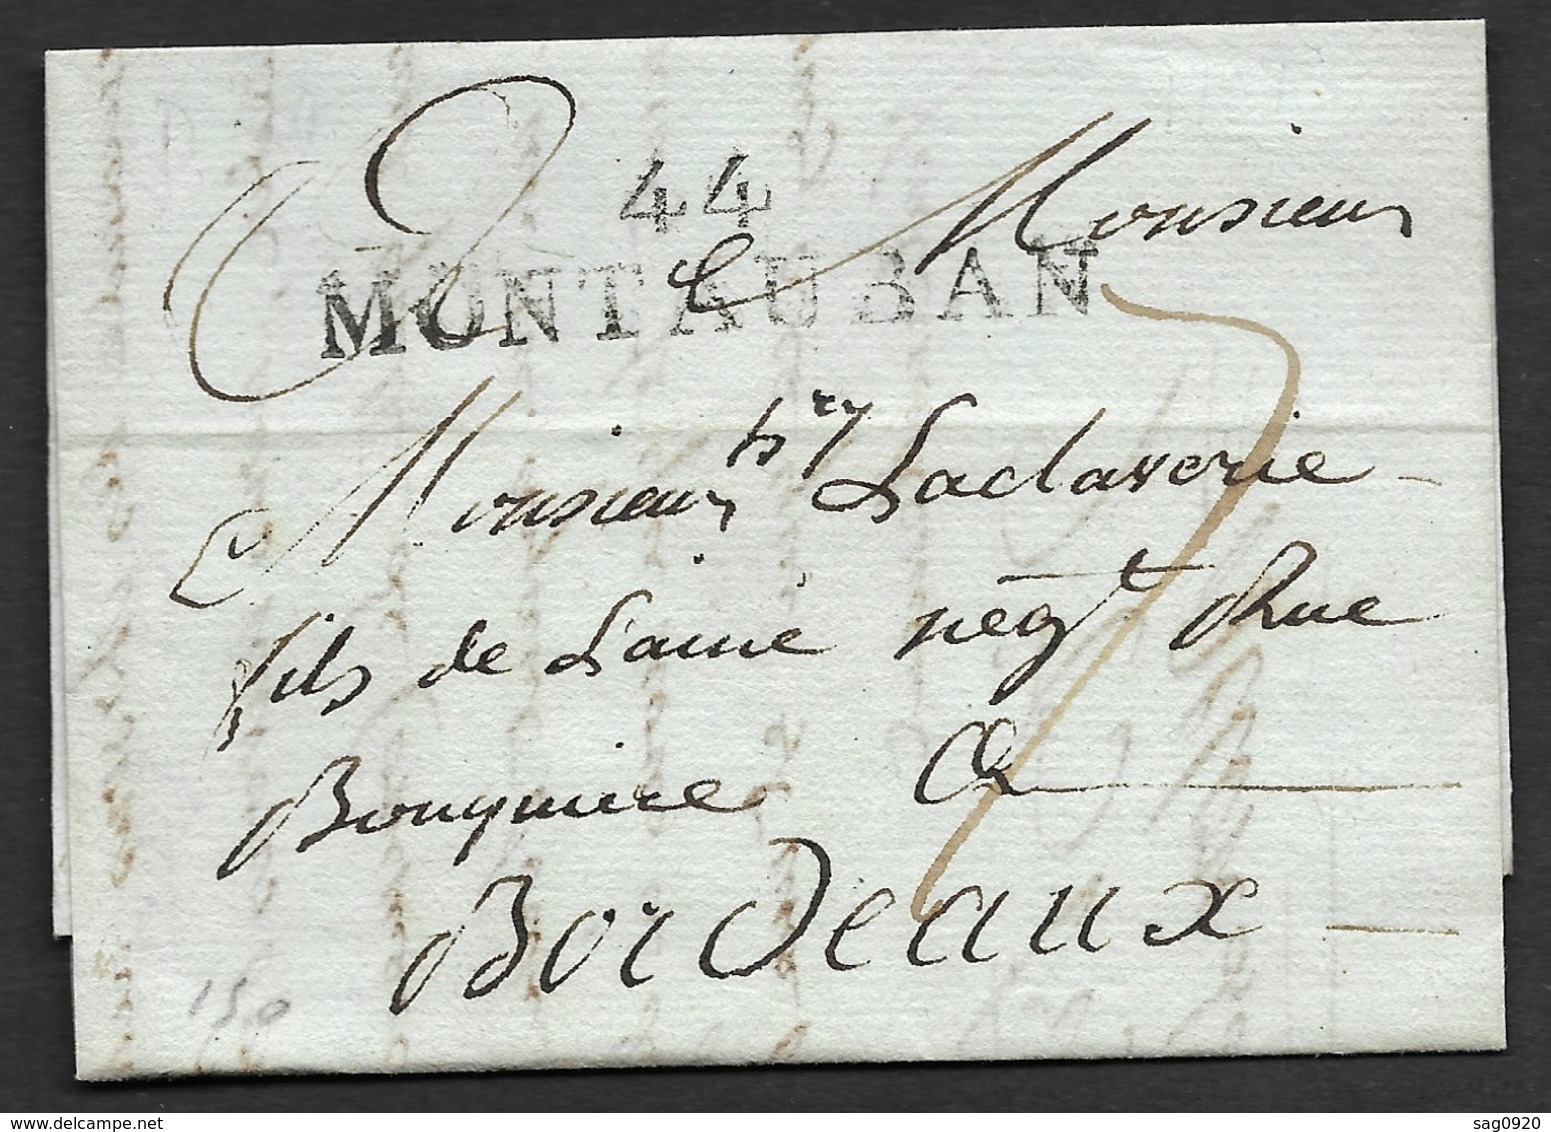 44
MONTAUBAN
A Monsieur
Monsieur hry Laclaverie
fils de Lainé negt Rue
Bouquiere
Bordeaux
150
www.delcampe.net
sag0920